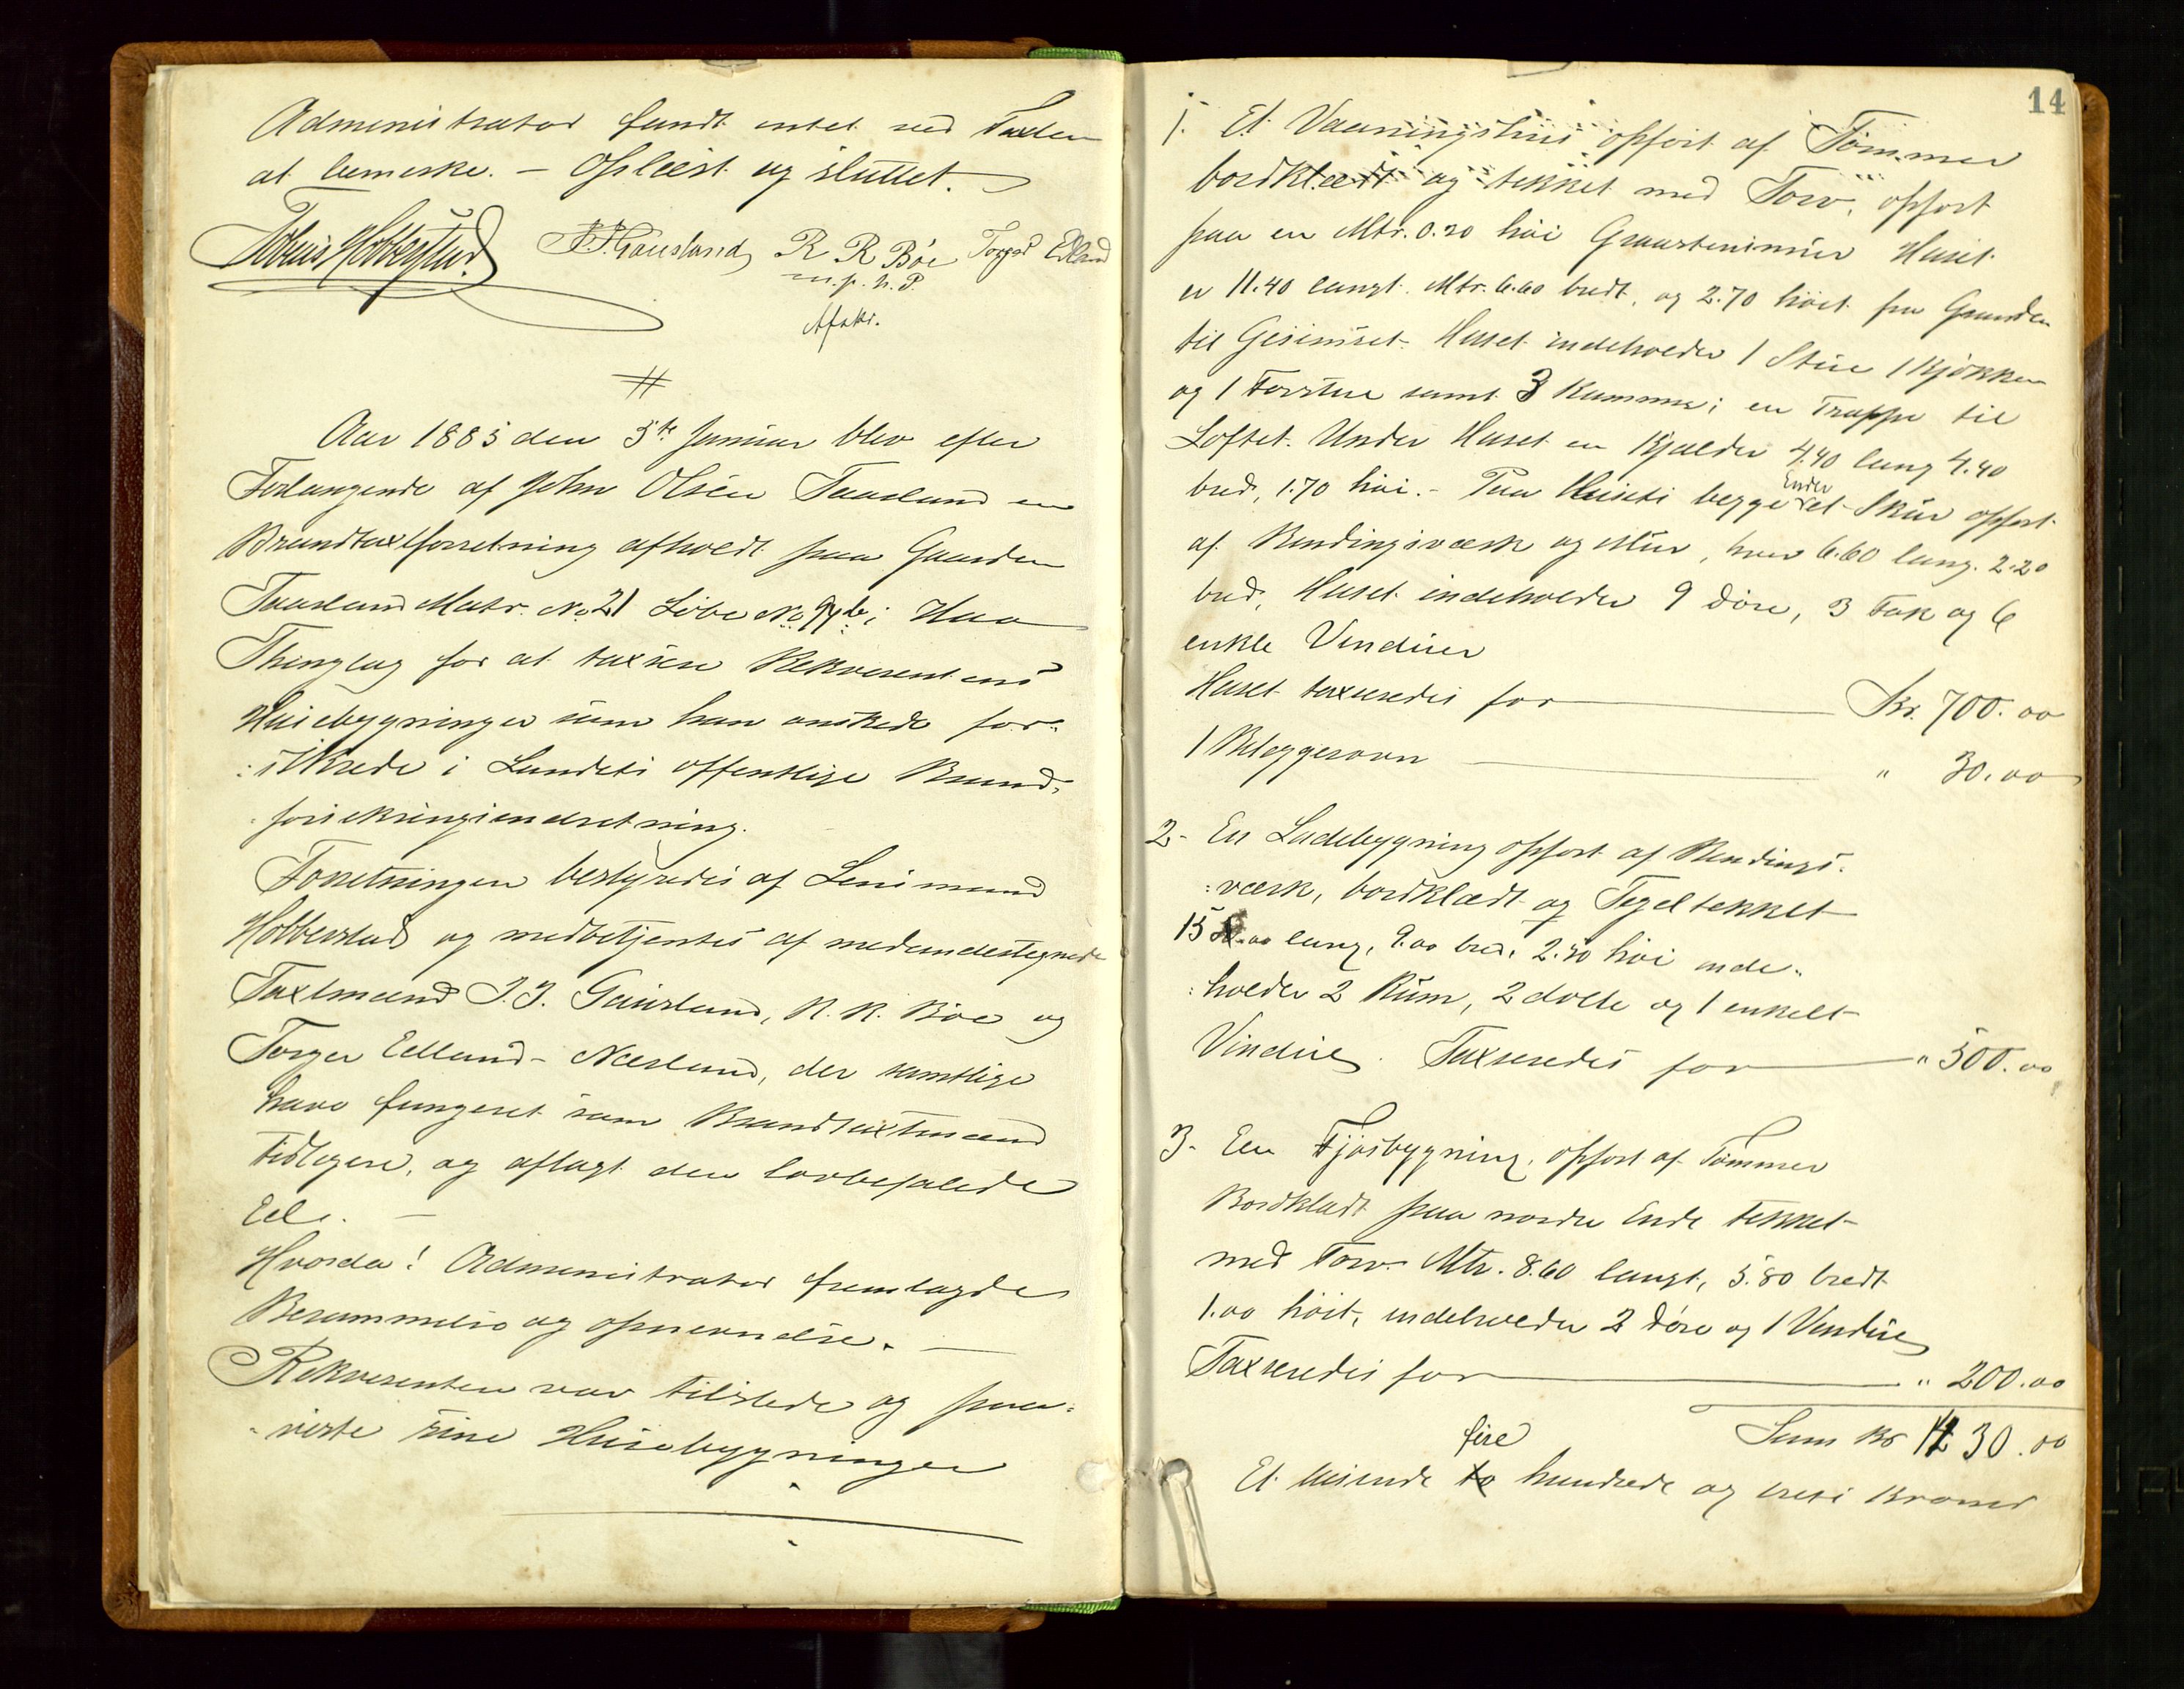 Administrator fandt intet ved Taxten
at bemerke. – Oplæst og sluttet.
Tobias Hobberstad. J. J. Gausland R R Bøe Torger Edland
m. p. h. P.
Afskr.
#
Aar 1885 den 5te Januar blev efter
Forlangende af John Olsen Taarland en
Brandtaxtforretning afholdt paa Gaarden
Taarland Matr. No. 21 Løbe No. 97b i Haa
Thinglag for at taxere Rekvirentens
Husebygninger som han ønskede for-
:sikrede i Landets offentlige Brand-
forsikringsindretning.
Forretningen bestyredes af Lensmand
Hobberstad og medbetjentes af medundertegnede
Taxtmænd J. J. Gausland, R. R. Bøe og
Torger Edland - Nærland, der samtlige
have fungeret som Brandtaxtmænd
tidligere, og aflagt den lovbefalede
Ed. –
Hvorda! Administrator fremlagde
Berammelse og opnævnelse. –
Rekvirenten var tilstede og paa-
viste sine Husebygninger
14
1. Et Vaaningshus opført af Tømmer
bordklædt og tekket med Torv, opført
paa en Mtr. 0.20 høi Graastensmur Huset
er 11.40 langt. Mtr. 6.60 bredt, og 2.70 høit fra Grunden
til Gesimset. Huset indeholder 1 Stue 1 Kjøkken
og 1 Forstue samt 3 Kammer; en Trappe til
Loftet. Under Huset en Kjælder 4.40 lang 4.40
bred, 1.70 høi. – Paa Husets begge Ender et Skur opført
af Bindingsværk og Mur, hver 6.60 lang. 2.20
bred, Huset indeholder 9 Døre, 3 Fak og 6
enkle Vinduer
Huset taxeredes for Kr. 700.00
1 Bilæggerovn " 30.00
2- En Ladebygning opført af Bindings-
:værk, bordklædt og Tegltekket
15.00 lang, 9.00 bred, 2.50 høi inde-
:holder 2 Rum, 2 dolte og 1 enkelt
Vindue. Taxeredes for " 500.00
3- En Fjøsbygning, opført af Tømmer
Bordklædt paa nordre Ende tekket
med Torv Mtr. 8.60 langt, 5.80 bredt
1.00 høit, indeholder 2 Døre og 1 Vindue
Taxeredes for " 200.00
Sum Kr 1430.00
Et tusinde to fire hundrede og treti Kroner